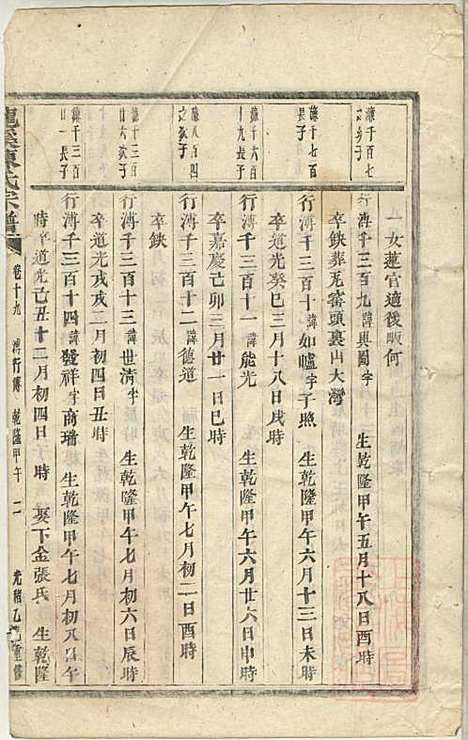 一女蓮官適後畈何
濂千百七
之次子
行溥千三百九諱與圖字　生乾隆甲午五月十八日酉時
卒缺葬瓦窑頭裏山大灣
濂千七百
長子
行溥千三百十諱如爐字子照　生乾隆甲午六月十三日未時
卒道光癸巳三月十八日戌時
濂千六百
十九長子
行溥千三百十一諱能光　生乾隆甲午六月廿六日申時
卒嘉慶己卯三月廿一日巳時
濂八百四
之次子
行溥千三百十二諱德道　生乾隆甲午七月初二日酉時
卒缺
濂千三百
廿六次子
行溥千三百十三諱世清字　生乾隆甲午七月初六日辰時
卒道光戊戌二月初四日丑時
濂千三百
四一長子
行溥千三百十四諱發祥字商瑨　生乾隆甲午七月初八日午
時卒道光己丑十二月初四日子時　娶下金張氏　生乾隆
氏宗譜　卷十九　溥行傳　乾隆甲午　二　光緒乙　重修